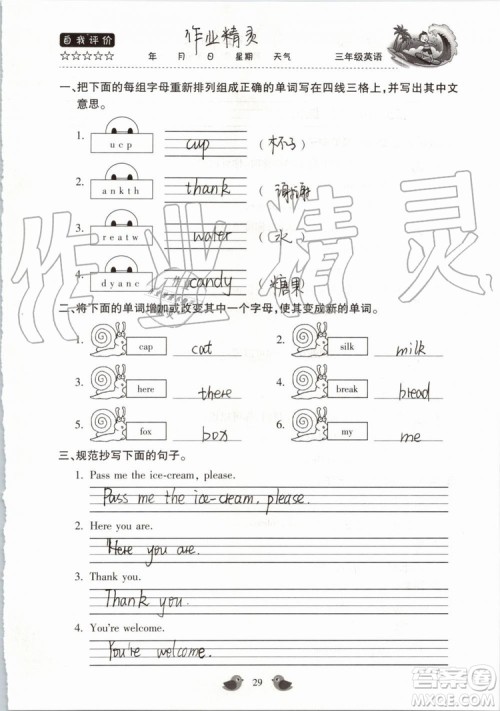 自我评价 作业精灵
☆☆☆☆☆ 年 月 日 星期 天气 三年级英语
一、把下面的每组字母重新排列组成正确的单词写在四线三格上,并写出其中文
意思。
1. u c p cup (杯子)
2. a n k t h thank (谢谢)
3. r e a t w water (水)
4. d y a n c candy (糖果)
二、将下面的单词增加或改变其中一个字母,使其变成新的单词。
1. cap cat 2. silk milk
3. here there 4. break bread
5. fox box 6. my me
三、规范抄写下面的句子。
1. Pass me the ice-cream, please.
Pass me the ice-cream, please.
2. Here you are.
Here you are.
3. Thank you.
Thank you.
4. You're welcome.
You're welcome.
29
作业精灵
答案圈
MXQE.COM